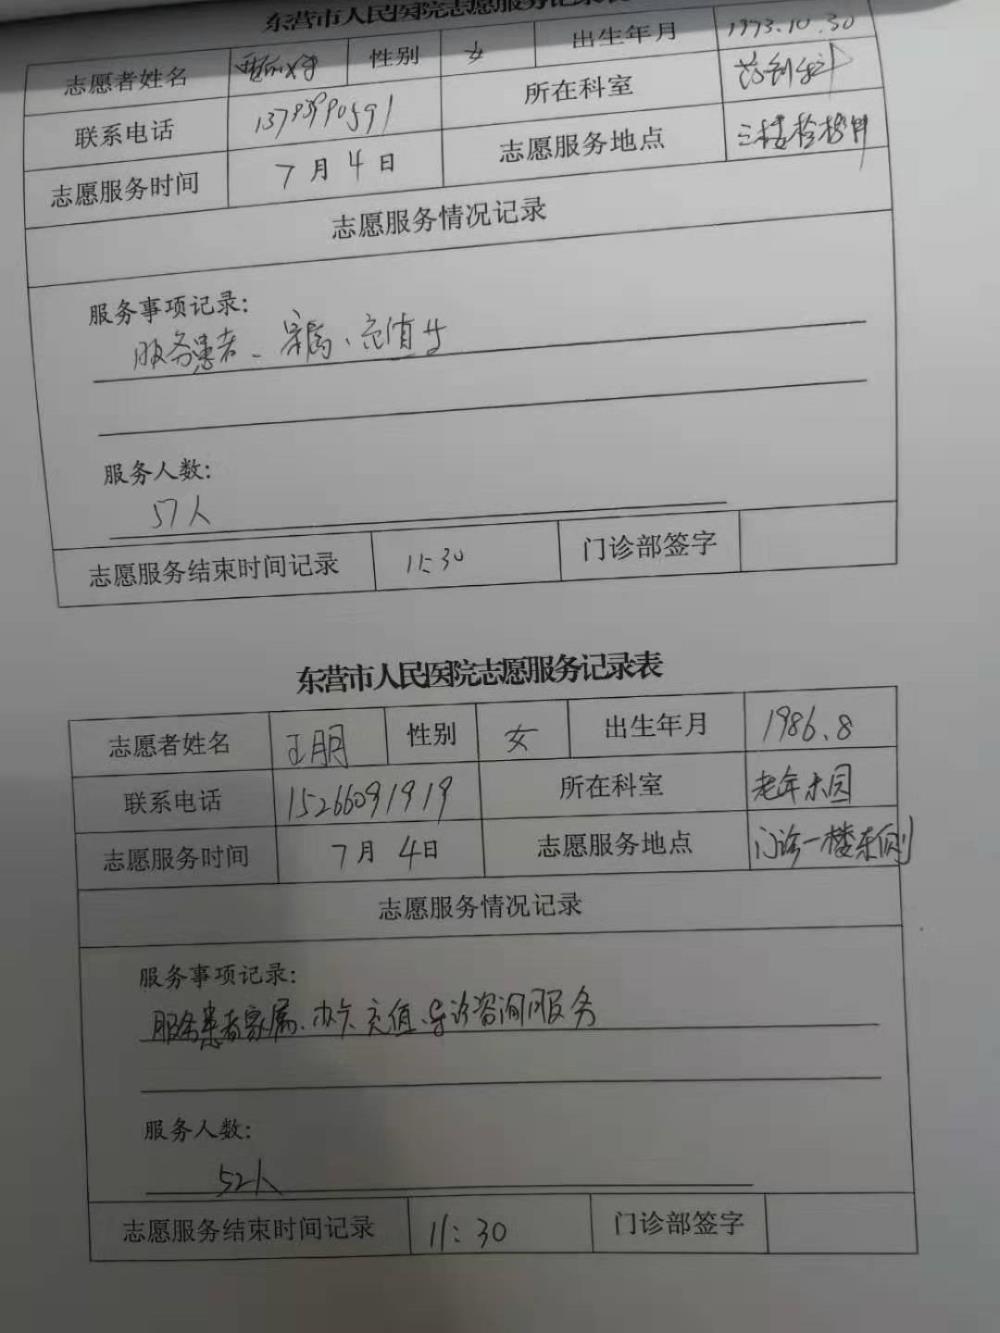 东营市人民医院志愿服务记录表
志愿者姓名 性别 女 出生年月 1973.10.30
联系电话 所在科室
志愿服务时间 7月4日 志愿服务地点 三楼检梯口
志愿服务情况记录
服务事项记录:
服务患者、家属、充值等
服务人数:
57人
志愿服务结束时间记录 11:30 门诊部签字
东营市人民医院志愿服务记录表
志愿者姓名 王朋 性别 女 出生年月 1986.8
联系电话 15266091919 所在科室 老年
志愿服务时间 7月4日 志愿服务地点 门诊一楼东侧
志愿服务情况记录
服务事项记录:
服务患者家属、办卡、充值、导诊咨询服务
服务人数:
52人
志愿服务结束时间记录 11:30 门诊部签字